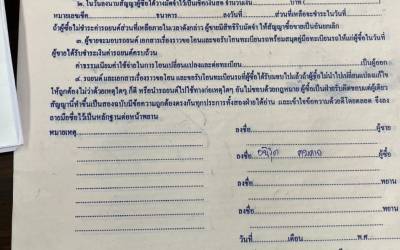 ๒. ในวันลงนามสัญญานี้ผู้ซื้อได้วางมัดจำไว้เป็นเงินสด จำนวนเงิน บาท (
หมายเลขเช็ค ธนาคาร ลงวันที่ ส่วนที่เหลือจะชำระในวันที่
ถ้าผู้ซื้อไม่ชำระค่ารถยนต์ส่วนที่เหลือภายในเวลาดังกล่าว ผู้ขายมีสิทธิริบมัดจำ ให้สัญญาซื้อขายเป็นอันยกเลิก
๓. ผู้ขายจะมอบรถยนต์ เอกสารเรื่องราวขอโอน และขอรับโอนทะเบียนรถพร้อมสมุดคู่มือทะเบียนรถให้แก่ผู้ซื้อในวันที่
ผู้ขายได้รับชำระเงินค่ารถยนต์ครบถ้วน
ค่าธรรมเนียมค่าใช้จ่ายในการโอนเปลี่ยนแปลงและต่อทะเบียน เป็นผู้ออก
๔. รถยนต์ และเอกสารเรื่องราวขอโอน และขอรับโอนทะเบียนรถที่ผู้ซื้อได้รับมอบไปแล้วถ้าผู้ซื้อไม่นำไปเปลี่ยนแปลงแก้ไข
ให้ถูกต้องไม่ว่าด้วยเหตุใดๆ ก็ดี หรือนำรถยนต์ไปใช้ทางก่อเหตุใดๆ อันไม่ชอบด้วยกฎหมาย ผู้ซื้อเป็นฝ่ายรับผิดชอบแต่ผู้เดียว
สัญญานี้ทำขึ้นเป็นสองฉบับมีข้อความถูกต้องตรงกันทุกประการทั้งสองฝ่ายได้อ่าน และเข้าใจข้อความด้วยดีโดยตลอด จึงลง
ลายมือชื่อไว้เป็นหลักฐานต่อหน้าพยาน
หมายเหตุ ลงชื่อ ผู้ขาย
ลงชื่อ ผู้ซื้อ
ลงชื่อ พยาน
ลงชื่อ พยาน
วันที่ เดือน พ.ศ.